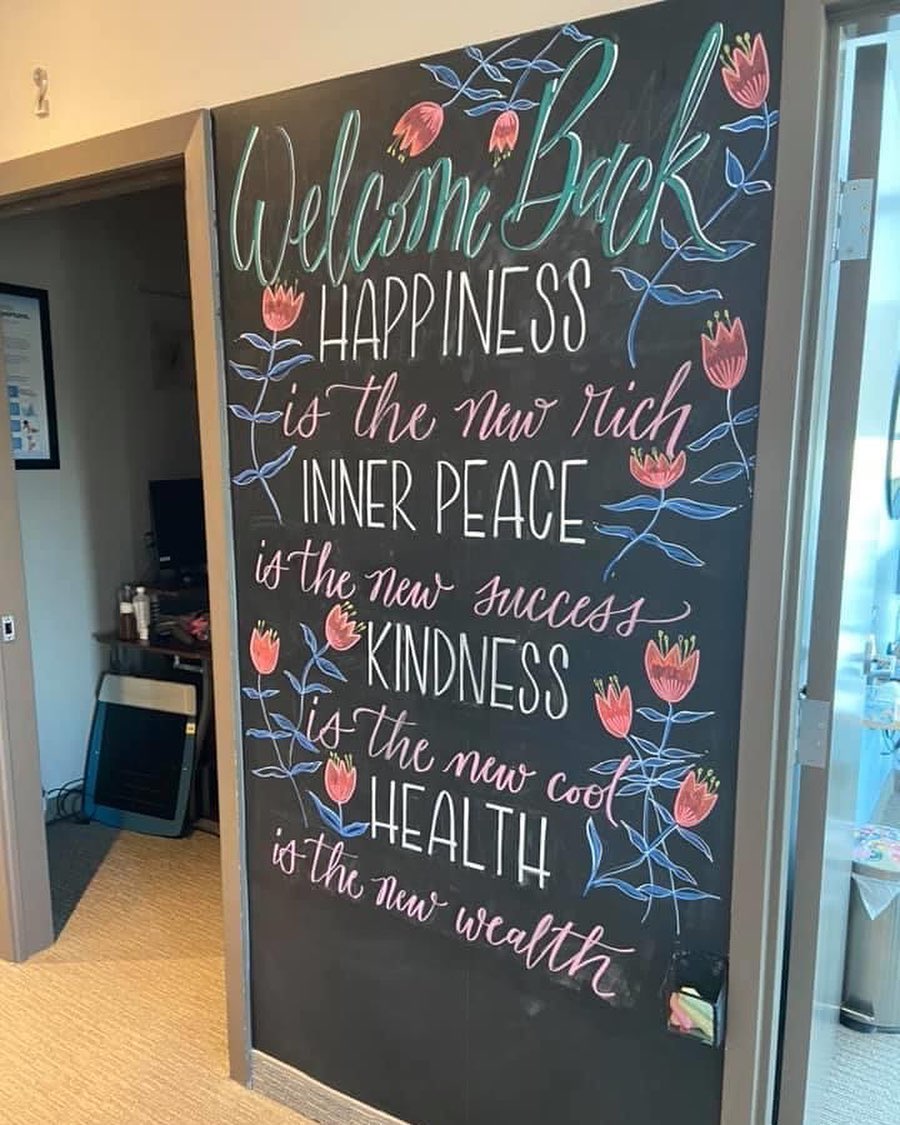 2
Welcome Back
HAPPINESS
is the new rich
INNER PEACE
is the new success
KINDNESS
is the new cool
HEALTH
is the new wealth